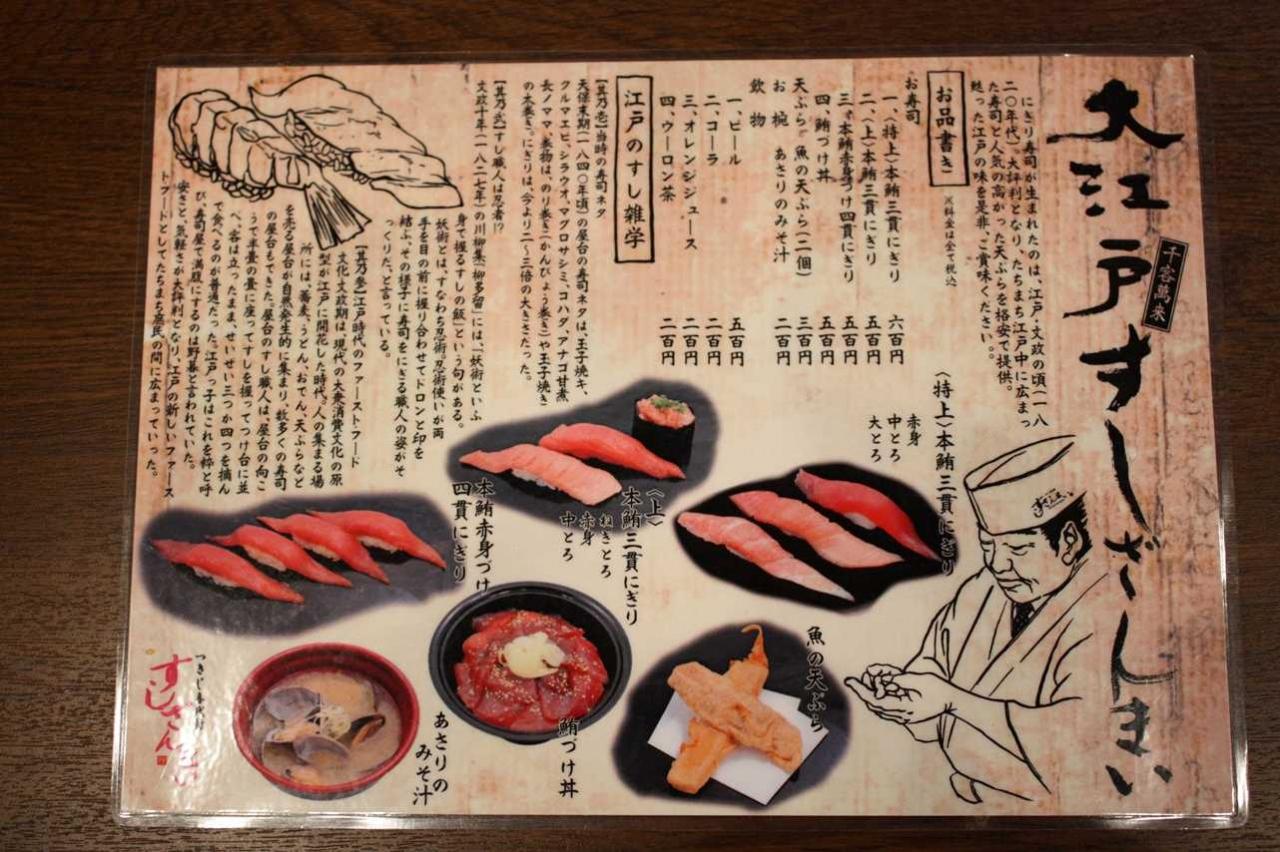 大江戸すしざんまい
千客萬来
にぎり寿司が生まれたのは、江戸・文政の頃(一八
二〇年代)。大評判となり、たちまち江戸中に広まっ
た寿司と人気の高かった天ぷらを格安で提供。
甦った江戸の味を是非、ご賞味ください。
お品書き
※料金は全て税込
お寿司
一、〈特上〉本鮪三貫にぎり 六百円
二、〈上〉本鮪三貫にぎり 五百円
三、本鮪赤身づけ四貫にぎり 五百円
四、鮪づけ丼 五百円
天ぷら 魚の天ぷら(二個) 三百円
お椀 あさりのみそ汁 二百円
飲物
一、ビール 五百円
二、コーラ 二百円
三、オレンジジュース 二百円
四、ウーロン茶 二百円
江戸のすし雑学
【其乃壱】当時の寿司ネタ
天保末期(一八四〇年頃)の屋台の寿司ネタは、玉子焼キ、
クルマエビ、シラウオ、マグロサシミ、コハダ、アナゴ甘煮
長ノママ、巻物は、のり巻き(かんぴょう巻き)や玉子焼き
の太巻き。にぎりは、今より二〜三倍の大きさだった。
【其乃弐】すし職人は忍者!?
文政十年(一八二七年)の川柳集「柳多留」には、「妖術といふ
身で握るすしの飯」という句がある。
妖術とは、すなわち忍術。忍術使いが両
手を目の前に握り合わせてドロンと印を
結ぶ、その様子に寿司をにぎる職人の姿がそ
っくりだ、と言っている。
【其乃参】江戸時代のファースト・フード
文化・文政期は、現代の大衆消費文化の原
型が江戸に開花した時代。人の集まる場
所には、蕎麦、うどん、おでん、天ぷらなど
を売る屋台が自然発生的に集まり、数多くの寿司
の屋台もできた。屋台のすし職人は、屋台の向こ
うで半畳の畳に座ってすしを握ってつけ台に並
べ、客は立ったまま、せいぜい三つか四つを摘ん
で食べるのが普通だった。江戸っ子はこれを粋と呼
び、寿司屋で満腹にするのは野暮と言われていた。
安さと、気軽さが大評判となり、江戸の新しいファース
トフードとしてたちまち庶民の間に広まっていった。
〈特上〉本鮪三貫にぎり
赤身
中とろ
大とろ
〈上〉
本鮪三貫にぎり
ねぎとろ
赤身
中とろ
本鮪赤身づけ
四貫にぎり
魚の天ぷら
鮪づけ丼
あさりの
みそ汁
すしざんまい